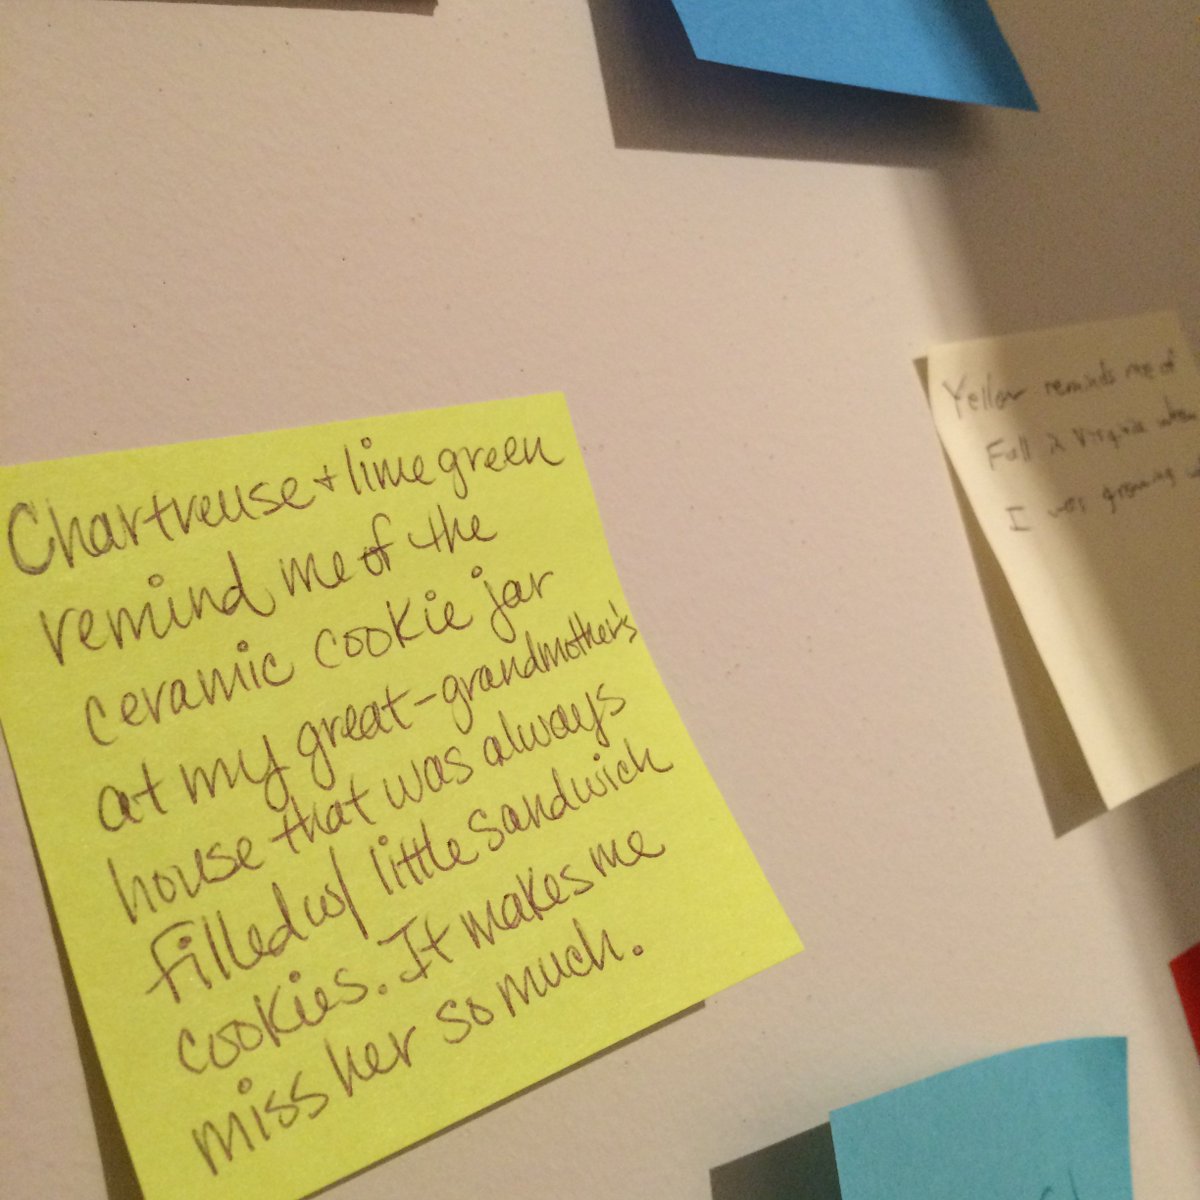 Chartreuse + lime green
remind me of the
ceramic cookie jar
at my great-grandmother's
house that was always
filled w/ little sandwich
cookies. It makes me
miss her so much.
Yellow reminds me of
Fall in Virginia when
I was growing